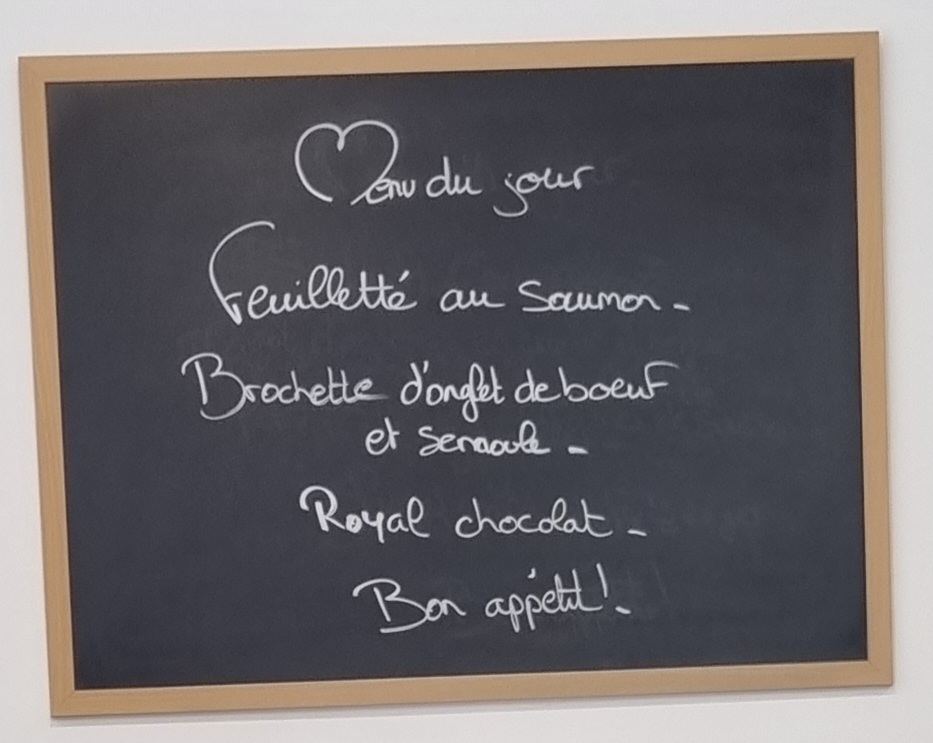 Menu du jour
Feuilletté au Saumon -
Brochette d'onglet de boeuf
et semoule -
Royal chocolat -
Bon appétit! -